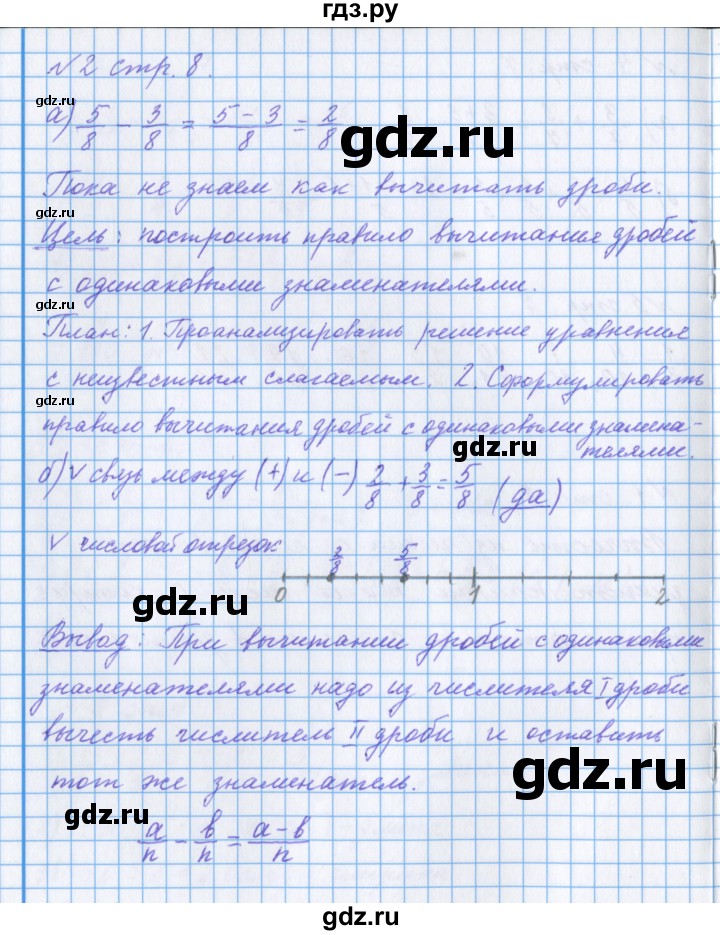 гдз.ру
№2 стр. 8.
gdz.ru
а) 5/8 - 3/8 = (5-3)/8 = 2/8
gdz.ru
gdz.ru
Пока не знаем как вычитать дроби.
gdz.ru
Цель: построить правило вычитания дробей
с одинаковыми знаменателями.
gdz.ru
План: 1. Проанализировать решение уравнения
с неизвестным слагаемым. 2. Сформулировать
правило вычитания дробей с одинаковыми знамена-
телями.
gdz.ru
gdz.ru
б) V связь между (+) и (-) 2/8 + 3/8 = 5/8 (да)
V числовой отрезок 2/8 5/8
0 1 2
gdz.ru
gdz.ru
Вывод: При вычитании дробей с одинаковыми
знаменателями надо из числителя I дроби
вычесть числитель II дроби и оставить
тот же знаменатель.
gdz.ru
gdz.ru
а/n - в/n = (а-в)/n
gdz.ru